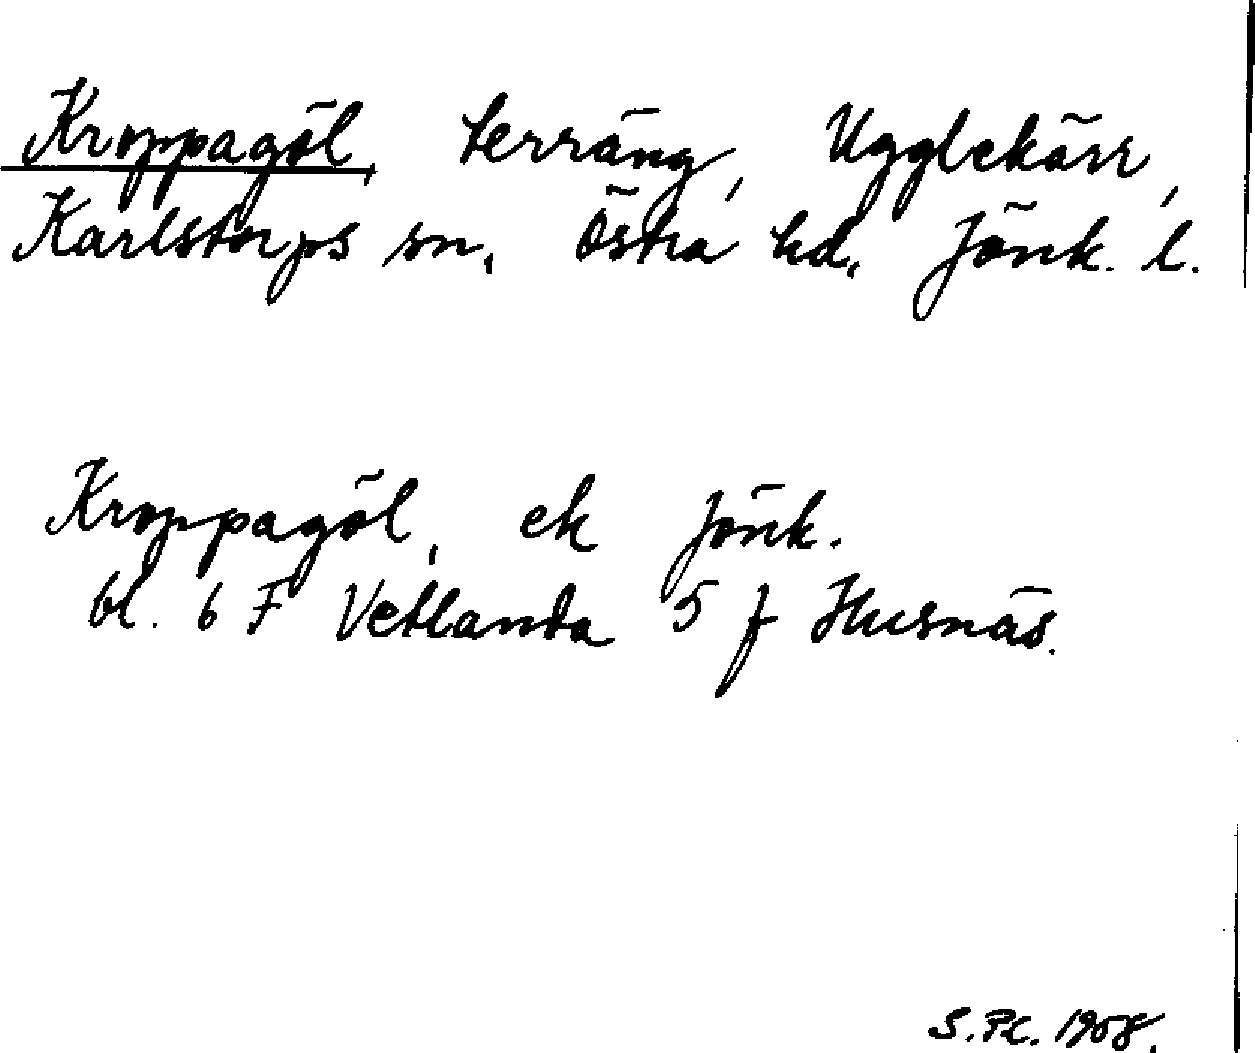 Kroppagöl, terräng, Ugglekärr,
Karlstorps sn, Östra hd, Jönk. l.
Kroppagöl, ek Jönk.
bl. 6 F Vetlanda 5 f Husnäs.
1958.